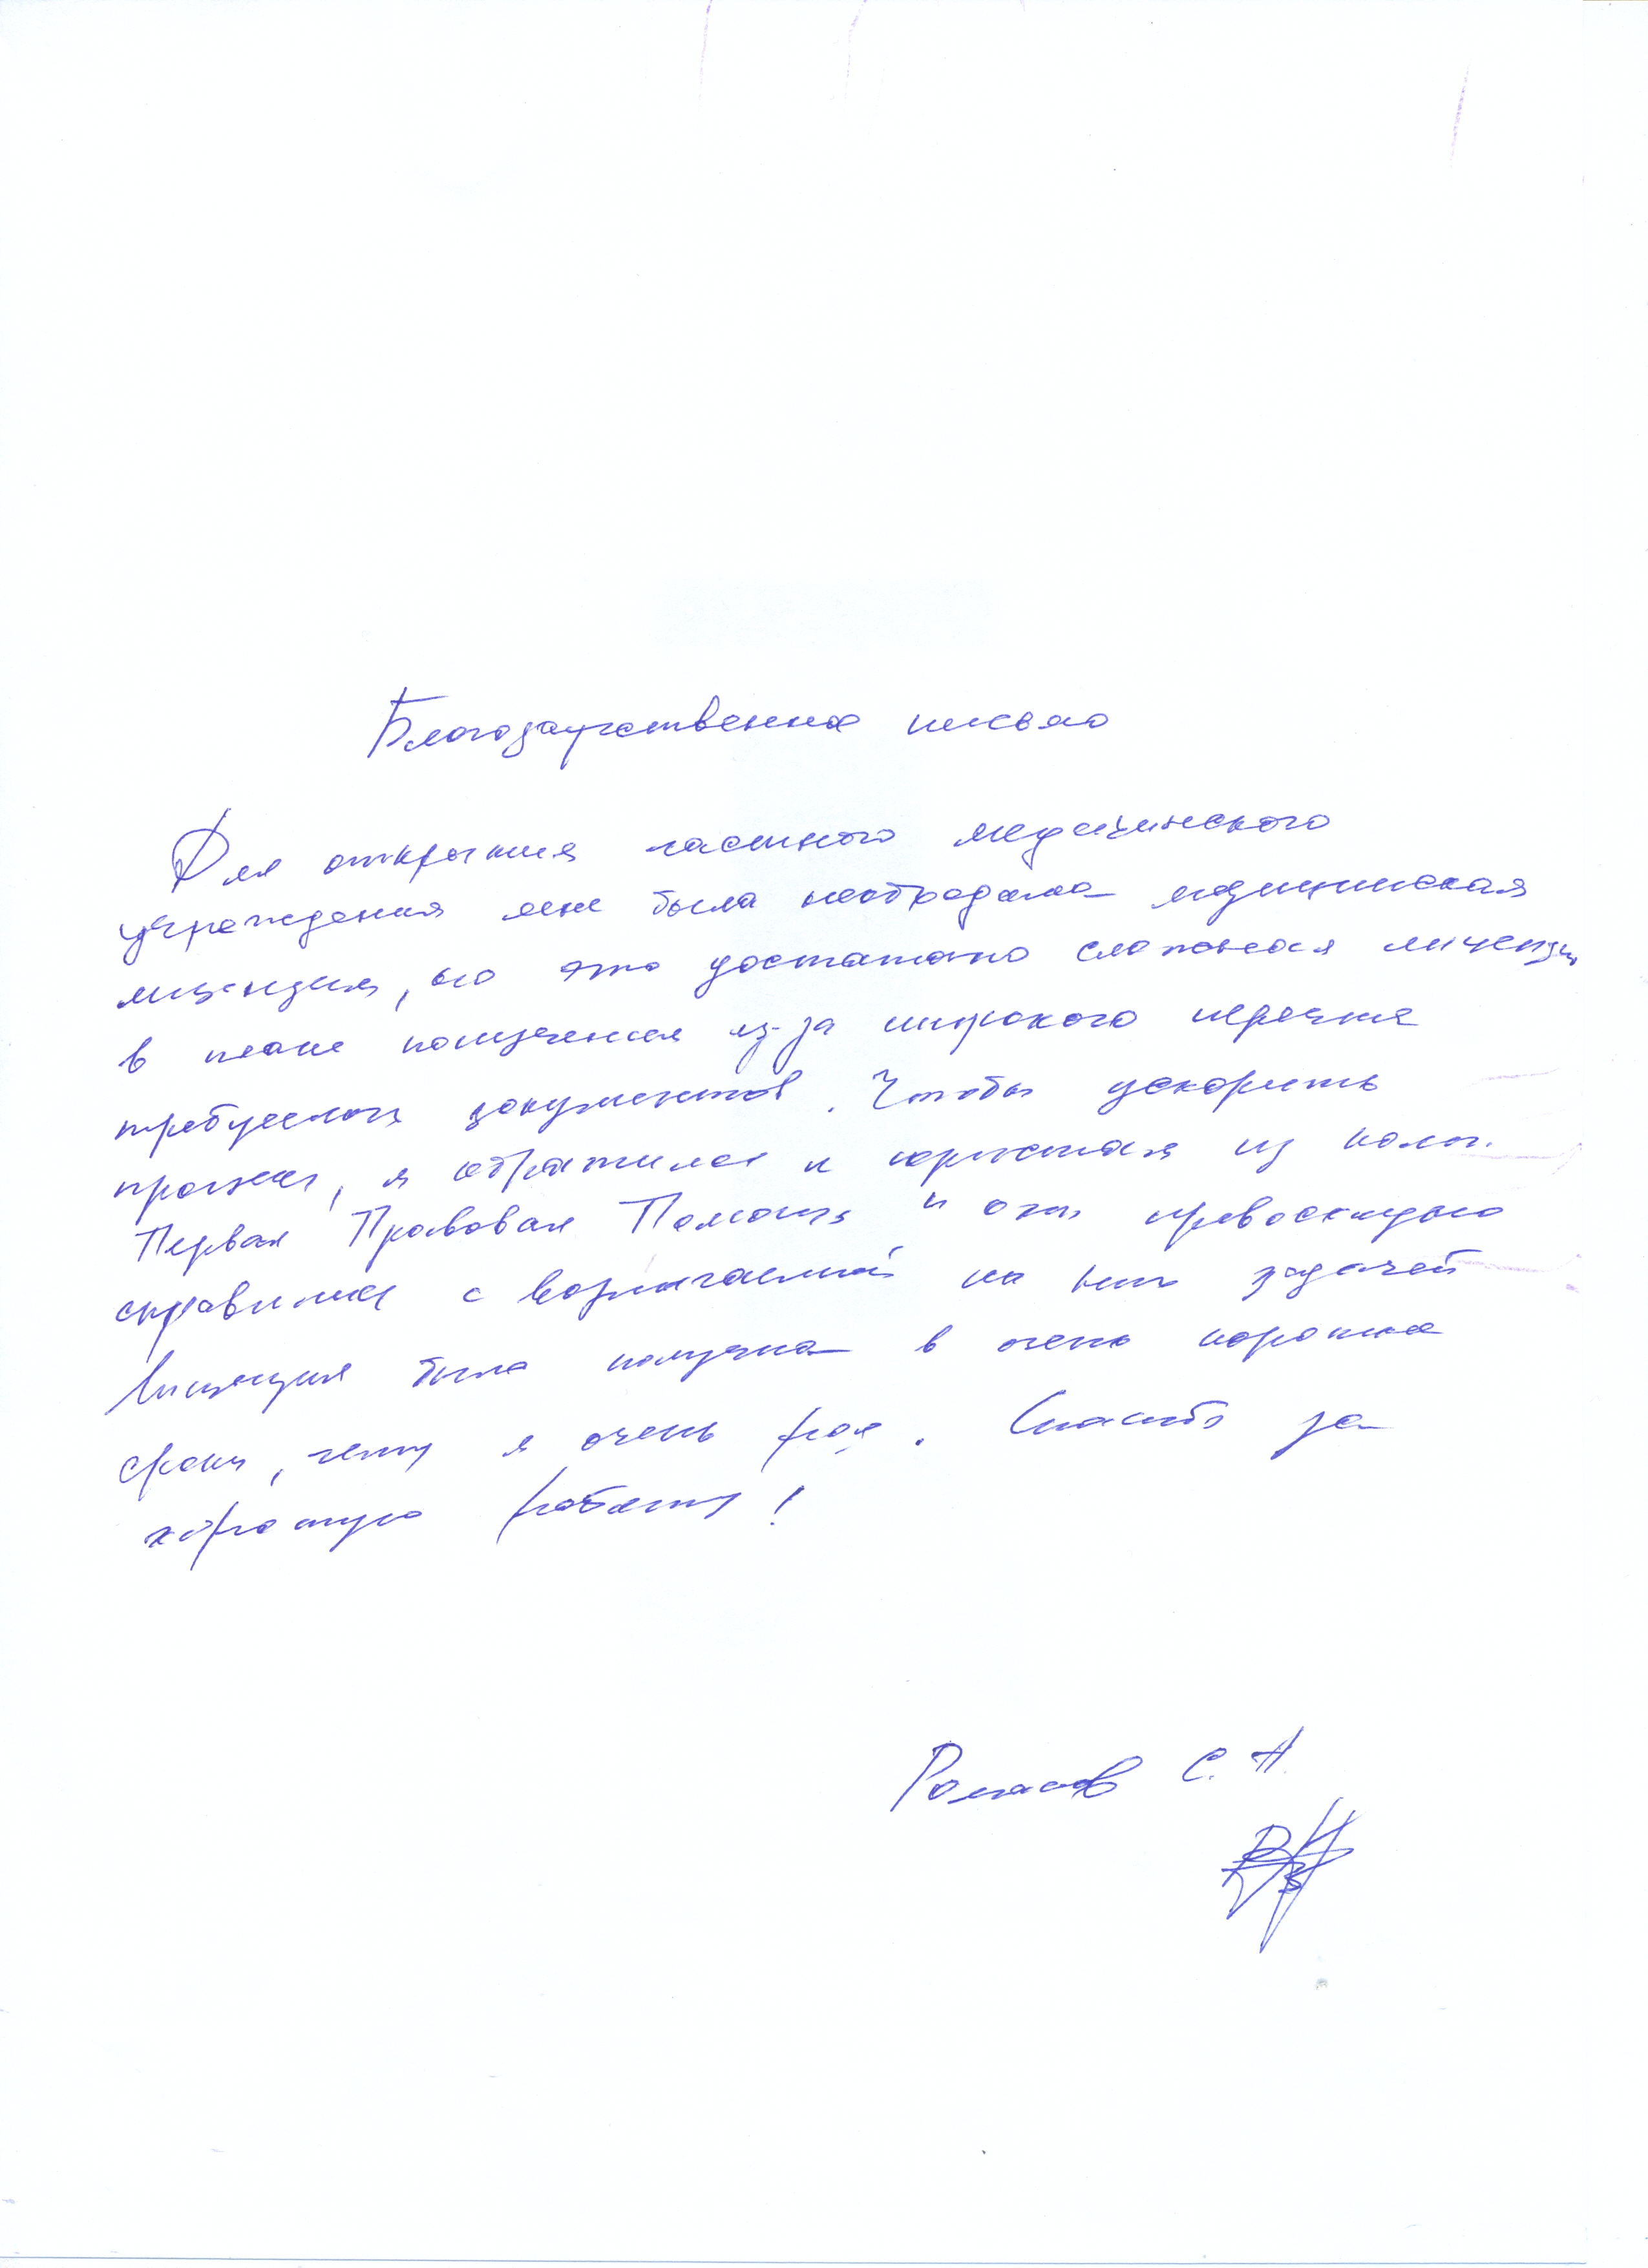 Благодарственное письмо
Для открытия частного медицинского
учреждения мне была необходима медицинская
лицензия, но это достаточно сложная лицензия
в плане получения из-за широкого перечня
требуемых документов. Чтобы ускорить
процесс, я обратился к юристам из комп.
Первая Правовая Помощь и они превосходно
справились с возлагаемой на них задачей
Лицензия была получена в очень короткие
сроки, чему я очень рад. Спасибо за
хорошую работу!
Романов С. Н.